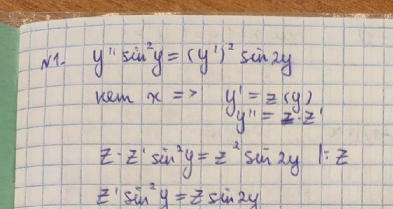 N1. y'' sin²y = (y')² sin2y
нет x => y' = z(y)
y'' = z·z'
z·z' sin²y = z² sin2y |: z
z' sin²y = z sin2y